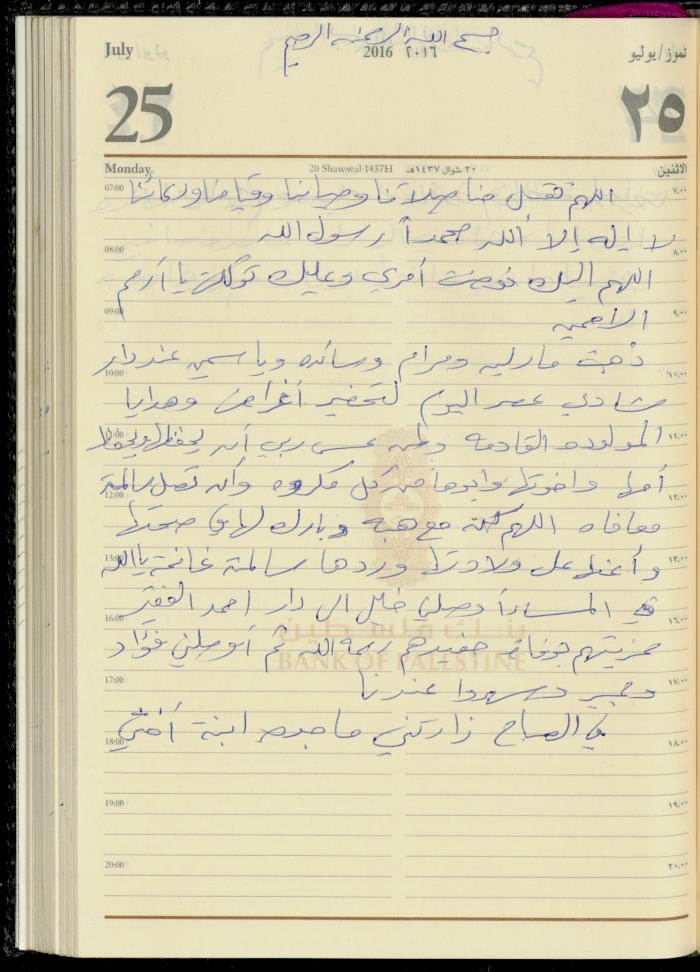 بسم الله الرحمن الرحيم
July 2016 ٢٠١٦ تموز / يوليو
25 ٢٥
Monday 20 Shawwal 1437H ٢٠ شوال ١٤٣٧هـ الاثنين
07:00 اللهم تقبل منا صلاتنا وصيامنا وقيامنا ودعائنا ٧:٠٠
لا إله إلا الله محمداً رسول الله
08:00 ٨:٠٠
اللهم اليك فوضت أمري وعليك توكلت يا أرحم
09:00 الراحمين ٩:٠٠
ذهبت مارليه ومرام وسائده وياسمين عند دار
10:00 ١٠:٠٠
شادي عصر اليوم لتحضير أغراض وهدايا
11:00 المولوده القادمه عسى ربي أن يحفظها ويحفظ ١١:٠٠
أمها واخوتها وابوها من كل مكروه وأن تصل سالمة
12:00 ١٢:٠٠
معافاه اللهم مع هبه وبارك لها في صحتها
13:00 وأعنها على ولادتها وردها سالمة غانمة يا الله ١٣:٠٠
في المساء وصلني خليل الى دار احمد الفقير
16:00 ١٦:٠٠
بنك فلسطين
عزيتهم بوفاة حفيدهم رحمه الله ثم أوصلني فؤاد
BANK OF PALESTINE
17:00 وعبير وسهروا عندنا ١٧:٠٠
في الصباح زارتني ماجده ابنة أختي
18:00 ١٨:٠٠
19:00 ١٩:٠٠
20:00 ٢٠:٠٠